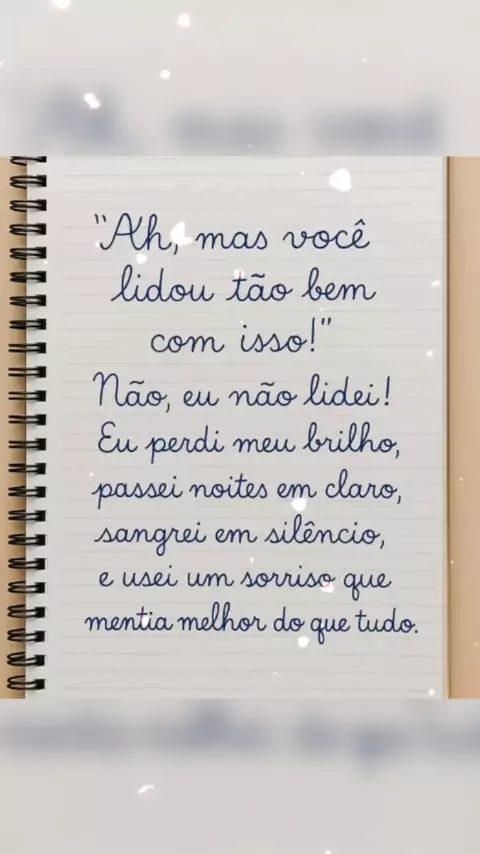 "Ah, mas você
lidou tão bem
com isso!"
Não, eu não lidei!
Eu perdi meu brilho,
passei noites em claro,
sangrei em silêncio,
e usei um sorriso que
mentia melhor do que tudo.